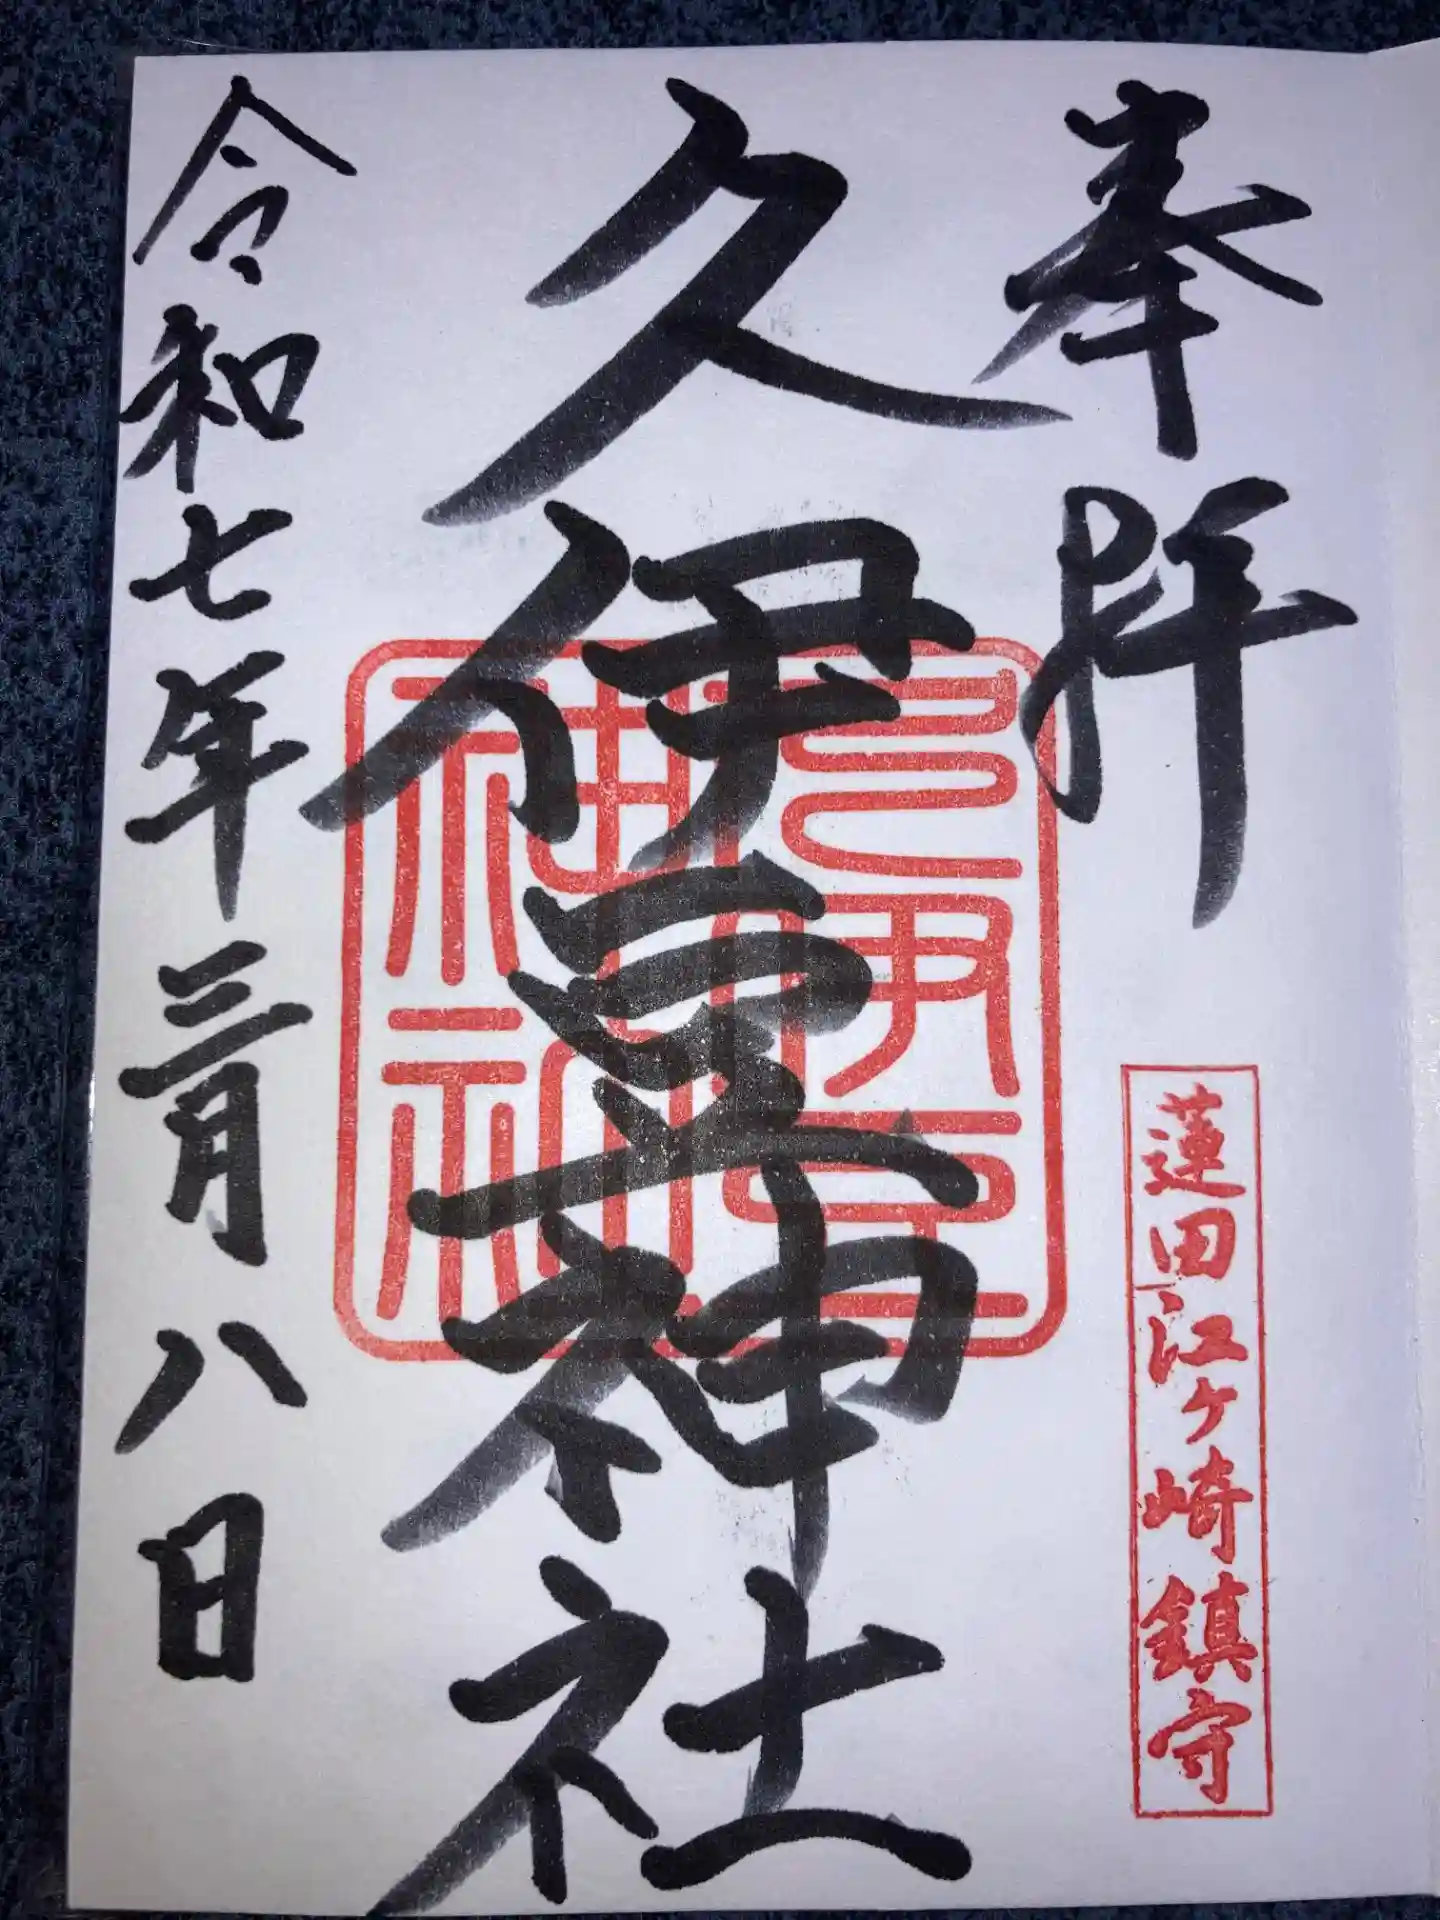 奉拝
蓮田江ヶ崎鎮守
久伊豆神社
久伊豆
神社
令和七年三月八日